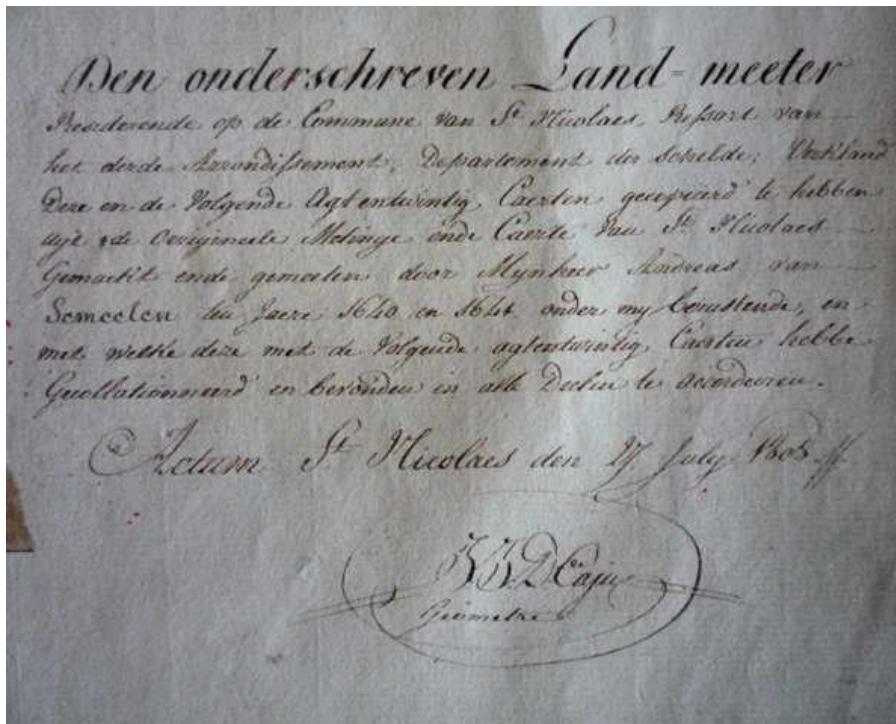 Den onderschreven Land-meeter
Residerende op de Commune van St. Nicolaes, Ressort van
het derde Arrondissement, Departement der Schelde; Verklaard
Deze en de Volgende Agtentwintig Caerten gecopieerd te hebben
uijt de Origineele Metinge ende Caerte van St. Nicolaes
Gemaeckt ende gemeeten door Mijnheer Andreas van
Semeelen ten Jaere 1640 en 1641 onder mij berustende, en
met welke deze met de Volgende agtentwintig Caerten hebbe
Gecollationneerd en bevonden in alle Deelen te accorderen.
Actum St. Nicolaes den 27 July
D Caju
Geometre